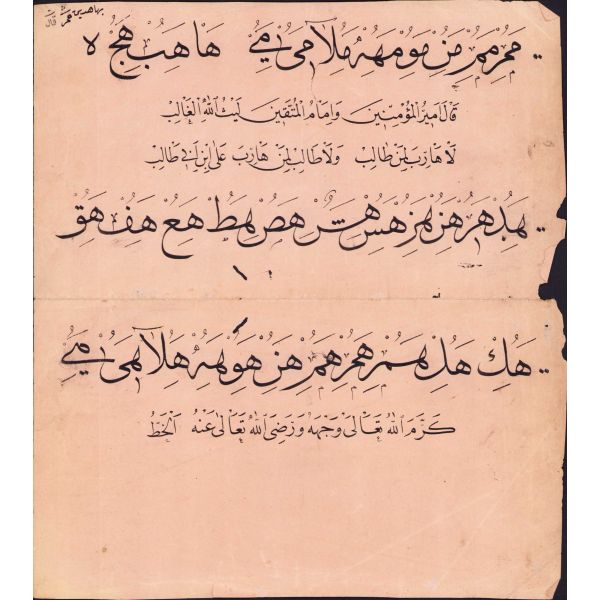 مم من مو مهه ملا مى مے ها هب هج ه
قَالَ اَمِيرُ الْمُؤْمِنِينَ وَاِمَامُ الْمُتَّقِينَ لَيْثُ اللّٰهِ الْغَالِبِ
لَا هَارِبَ لِمَنْ طَالِبَ وَلَا طَالِبَ لِمَنْ هَارِبَ عَلِى ابْنِ اَبِى طَالِبِ
هد هر هس هص هط هع هف هق
هك هل هم هن هو هه هلا هى
كَرَّمَ اللّٰهُ تَعَالٰى وَجْهَهُ وَرَضِىَ اللّٰهُ تَعَالٰى عَنْهُ اَلْخَطُّ